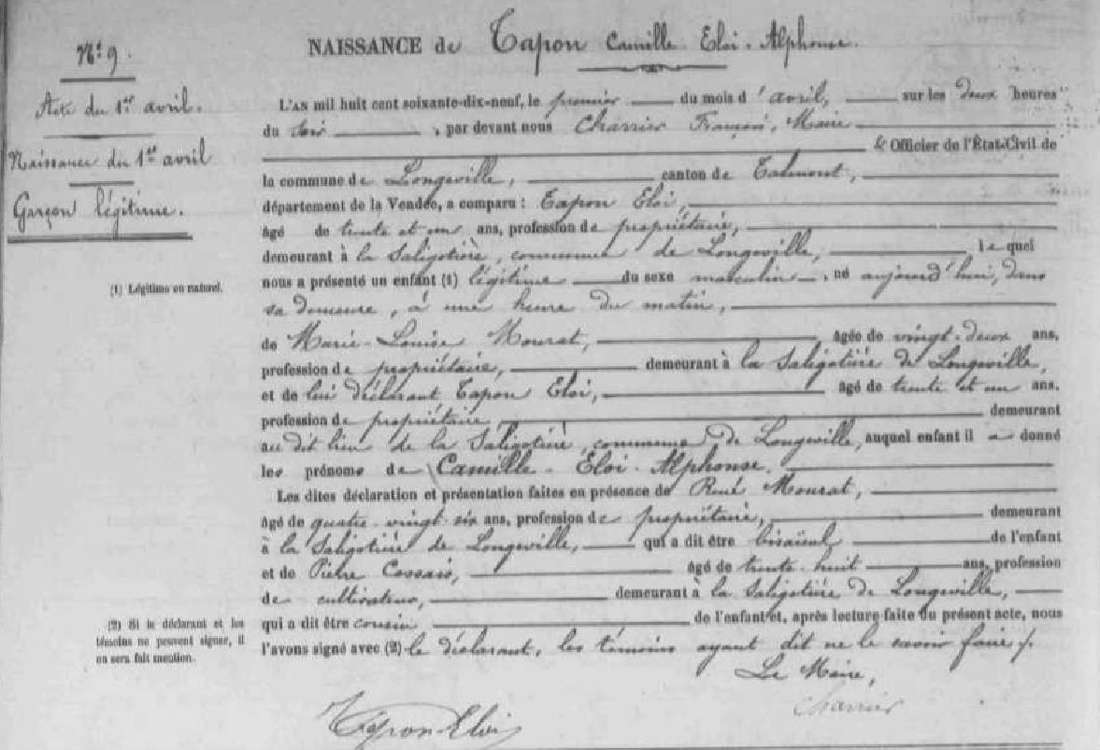 N° 9.
Acte du 1er avril.
Naissance du 1er avril
Garçon légitime.
(1) Légitime ou naturel.
(2) Si le déclarant et les
témoins ne peuvent signer, il
en sera fait mention.
NAISSANCE de Tapon Camille Eloi-Alphonse.
L'AN mil huit cent soixante-dix-neuf, le premier du mois d'avril, sur les deux heures
du soir, par devant nous Charrier François, Maire
& Officier de l'État-Civil de
la commune de Longeville, canton de Talmont,
département de la Vendée, a comparu : Tapon Eloi,
âgé de trente et un ans, profession de propriétaire,
demeurant à la Saligotière, commune de Longeville, lequel
nous a présenté un enfant (1) légitime du sexe masculin, né aujourd'hui, dans
sa demeure, à une heure du matin,
de Marie-Louise Mourat, âgée de vingt-deux ans,
profession de propriétaire, demeurant à la Saligotière de Longeville,
et de lui déclarant Tapon Eloi, âgé de trente et un ans,
profession de propriétaire, demeurant
au dit lieu de la Saligotière, commune de Longeville, auquel enfant il a donné
les prénoms de Camille-Eloi-Alphonse.
Les dites déclaration et présentation faites en présence de René Mourat,
âgé de quatre-vingt-six ans, profession de propriétaire, demeurant
à la Saligotière de Longeville, qui a dit être bisaïeul de l'enfant
et de Pierre Cossais, âgé de trente-huit ans, profession
de cultivateur, demeurant à la Saligotière de Longeville,
qui a dit être cousin de l'enfant et, après lecture faite du présent acte, nous
l'avons signé avec (2) le déclarant, les témoins ayant dit ne le savoir faire /.
Le Maire,
Charrier
Tapon Eloi